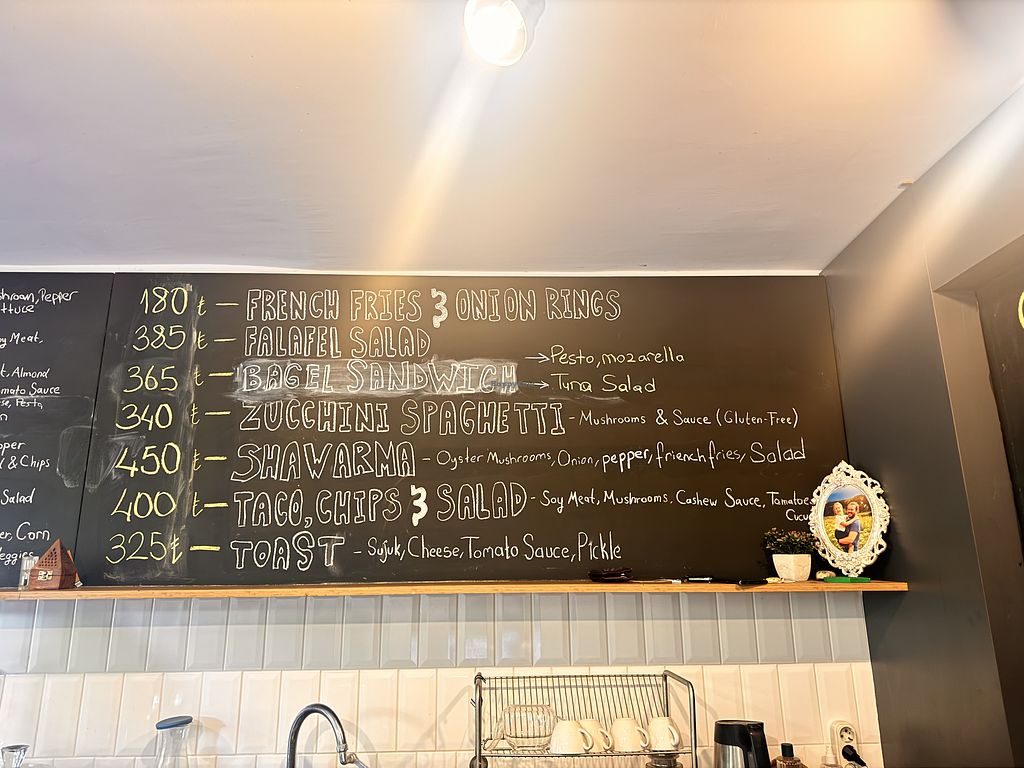 shroom, Pepper
ttuce
y Meat,
t, Almond
mato Sauce
se, Pesta
n
pper
l & Chips
Salad
er, Corn
eggies
180 ₺ — FRENCH FRIES & ONION RINGS
385 ₺ — FALAFEL SALAD
365 ₺ — BAGEL SANDWICH → Pesto, mozarella
→ Tuna Salad
340 ₺ — ZUCCHINI SPAGHETTI - Mushrooms & Sauce (Gluten-Free)
450 ₺ — SHAWARMA - Oyster Mushrooms, Onion, pepper, frienchfries, Salad
400 ₺ — TACO, CHIPS & SALAD - Soy Meat, Mushrooms, Cashew Sauce, Tomatoes
Cucu
325₺ — TOAST - Sujuk, Cheese, Tomato Sauce, Pickle